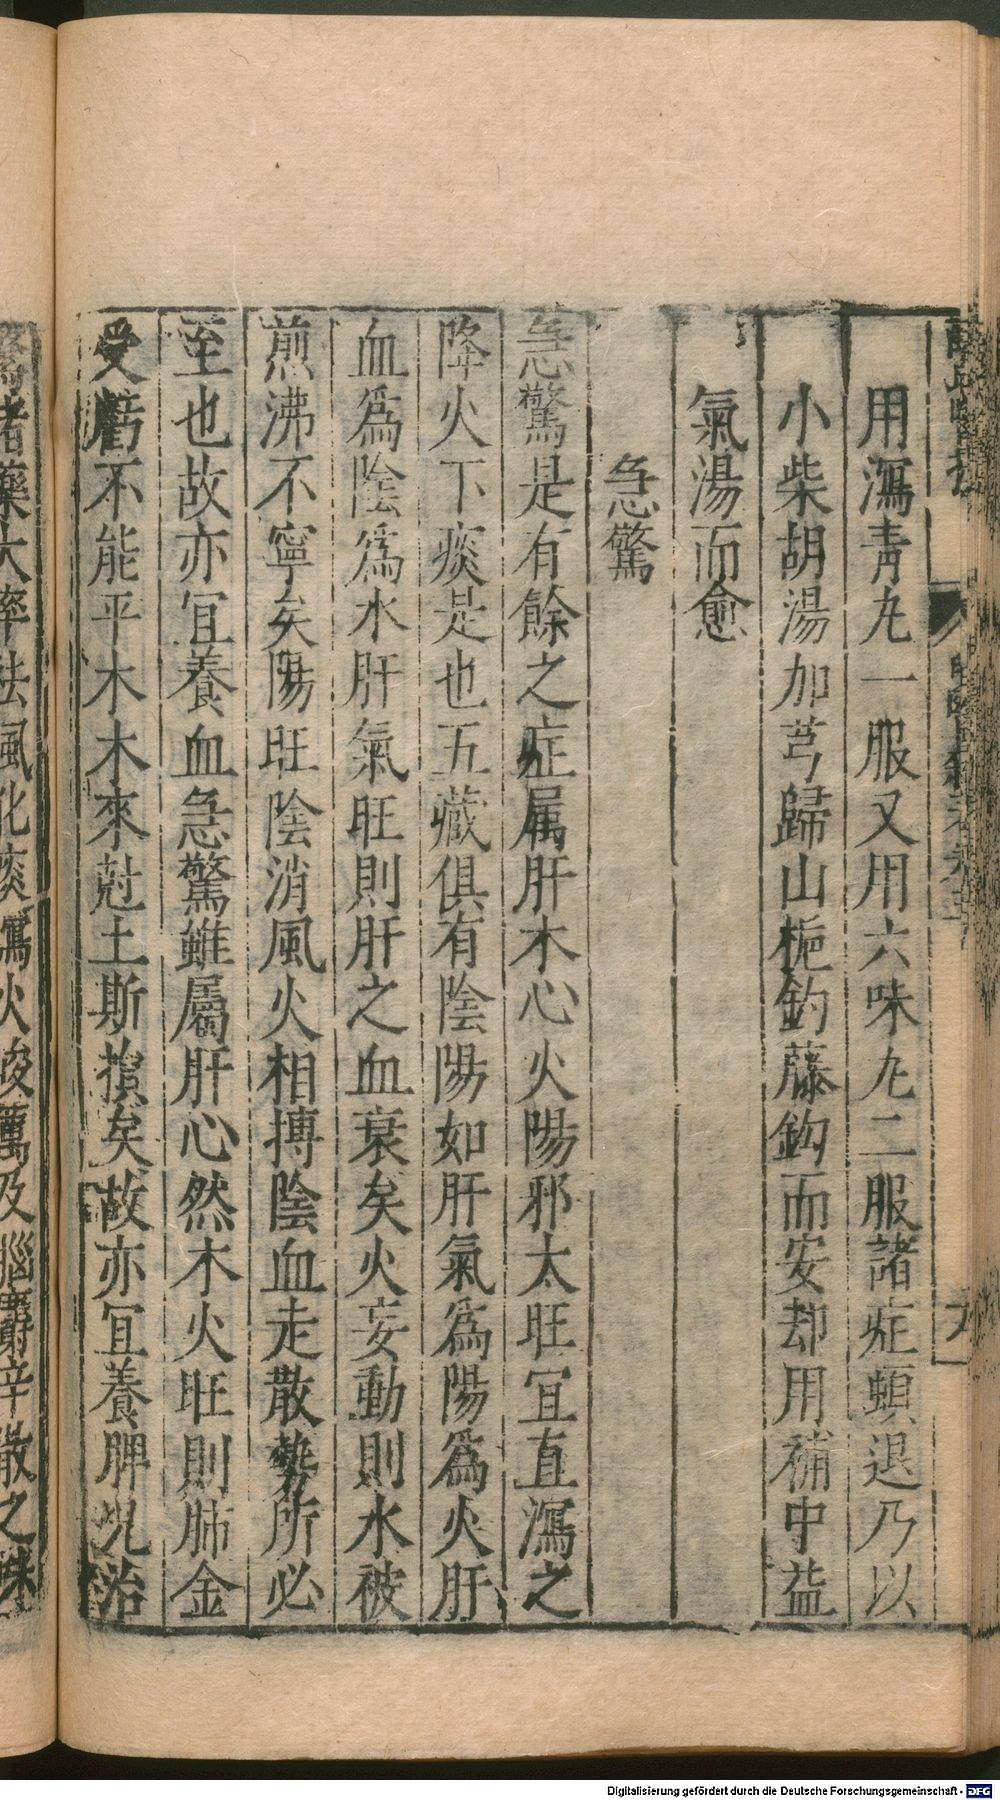 用瀉青丸一服又用六味丸二服諸症頓退乃以
小柴胡湯加芎歸山梔鈎藤鈎而安却用補中益
氣湯而愈
急驚
急驚是有餘之症属肝木心火陽邪太旺宜直瀉之
降火下痰是也五藏俱有陰陽如肝氣爲陽爲火肝
血爲陰爲水肝氣旺則肝之血衰矣火妄動則水被
煎沸不寧矣陽旺陰消風火相搏陰血走散勢所必
至也故亦宜養血急驚雖屬肝心然木火旺則肺金
受虧不能平木木來尅土斯損矣故亦宜養脾况治
驚諸藥大率祛風化痰瀉火峻厲及腦麝辛散之味
Digitalisierung gefördert durch die Deutsche Forschungsgemeinschaft - DFG